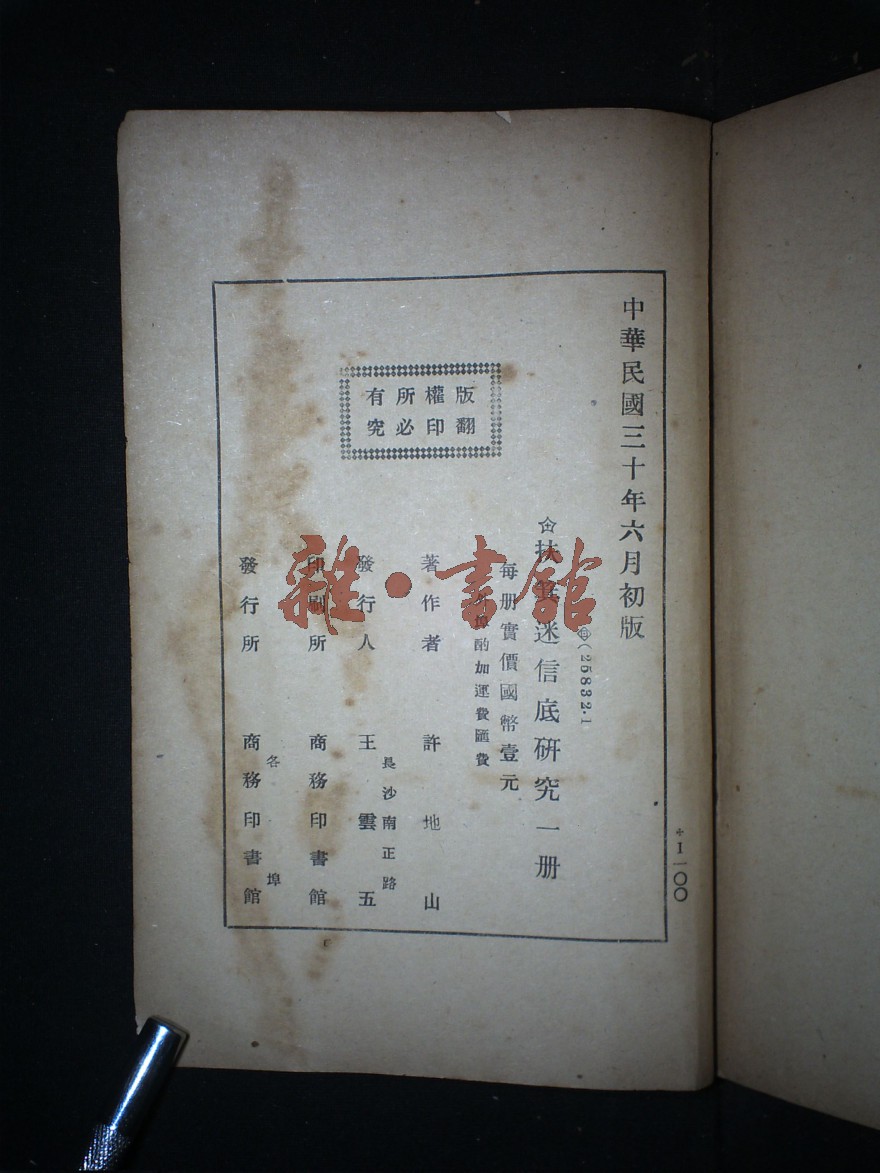 中華民國三十年六月初版
(25832·1
扶箕迷信底研究一册
每册實價國幣壹元
酌加運費匯費
版權所有
翻印必究
著作者 許地山
發行人 王雲五
長沙南正路
印刷所 商務印書館
發行所 商務印書館
各埠
1一〇〇
雜·書館